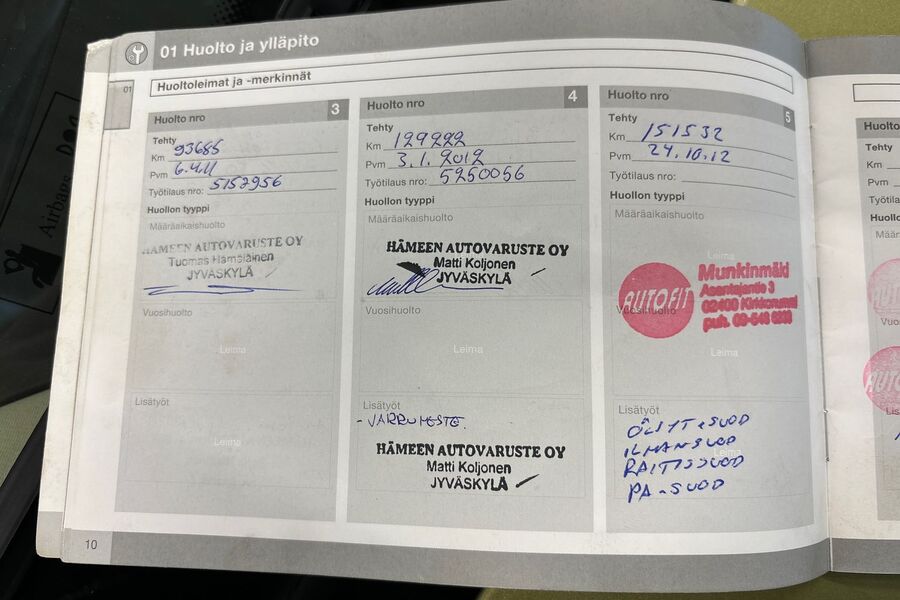 01 Huolto ja ylläpito
01
Huoltoleimat ja -merkinnät
Huolto nro 3
Tehty
Km 93685
Pvm 6.4.11
Työtilaus nro: 5152956
Huollon tyyppi
Määräaikaishuolto
HÄMEEN AUTOVARUSTE OY
Tuomas Hämäläinen
JYVÄSKYLÄ
Vuosihuolto
Leima
Lisätyöt
Leima
10
Huolto nro 4
Tehty
Km 129222
Pvm 3.1.2012
Työtilaus nro: 5250056
Huollon tyyppi
Määräaikaishuolto
HÄMEEN AUTOVARUSTE OY
Matti Koljonen
JYVÄSKYLÄ
Vuosihuolto
Leima
Lisätyöt
- JARRUNESTE.
HÄMEEN AUTOVARUSTE OY
Matti Koljonen
JYVÄSKYLÄ
Huolto nro 5
Tehty
Km 151532
Pvm 24.10.12
Työtilaus nro:
Huollon tyyppi
Määräaikaishuolto
Leima
AUTOFIT
Munkinmäki
Asentajantie 3
02400 Kirkkonummi
Vuosihuolto
Leima
Lisätyöt
ÖLJYT+SUOD
ILMANSUOD
RAITISSUOD
PA-SUOD
Huolto
Tehty
Km
Pvm
Työtila
Huollo
Määrä
Vuosih
Lisätyö
Airbags